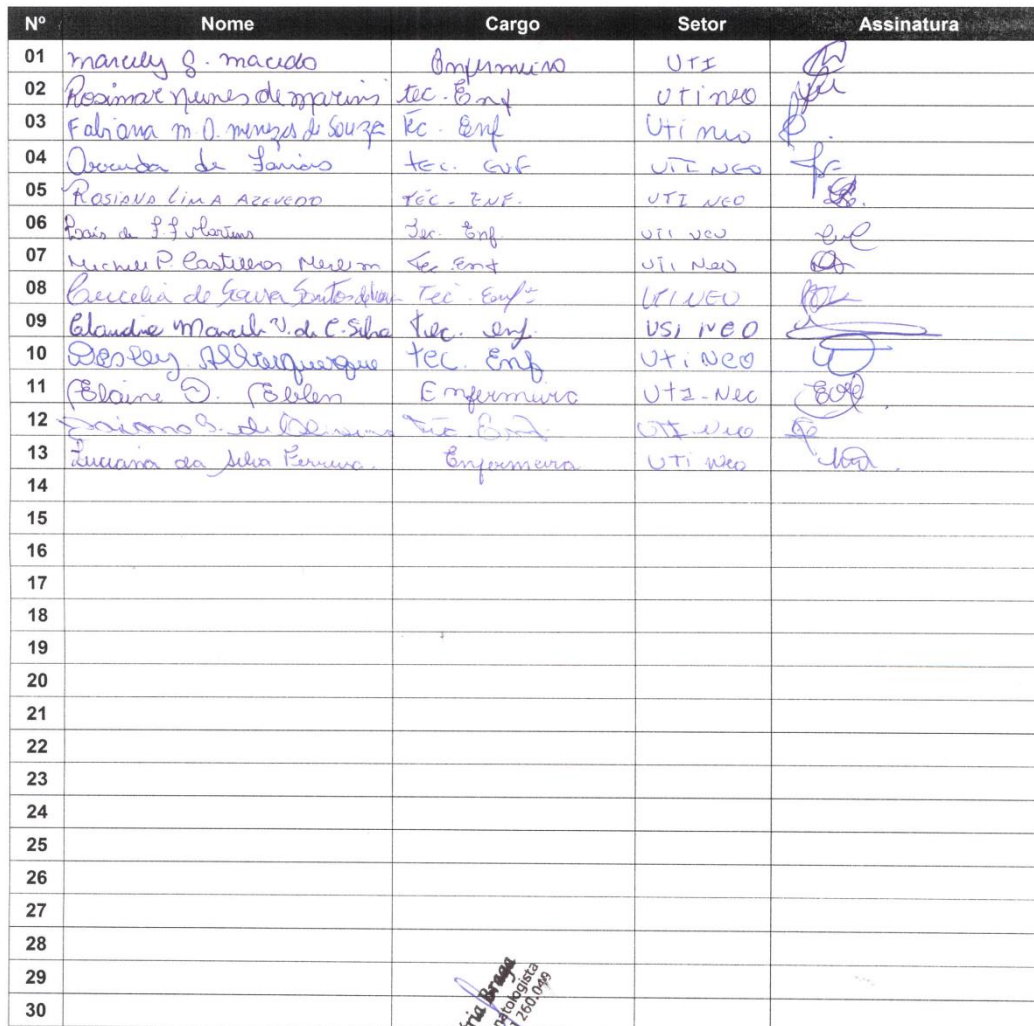 Nº Nome Cargo Setor Assinatura
01 Marcely G. Macedo Enfermeiro UTI
02 Rosimar Nunes de Marins tec. Enf UTI neo
03 Fabiana M. O. Menezes de Souza tec. Enf Uti neo
04 de Farias tec. Enf UTI NEO
05 ROSIANA LIMA AZEVEDO TÉC. ENF. UTI NEO
06 de Martins Tec. Enf UTI neo
07 P. Castilhos Tec. Enf UTI Neo
08 de Souza Santos Tec. Enfª UTI NEO
09 Claudia V. de C. Silva tec. enf. USI NEO
10 Albuquerque tec. Enf Uti Neo
11 Elaine Enfermeira UtI-Neo
12 de Oliveira Tec. Enf. UTI Neo
13 Luciana da Silva Ferreira. Enfermeira UTI Neo
14
15
16
17
18
19
20
21
22
23
24
25
26
27
28
29
30
Braga
260.049